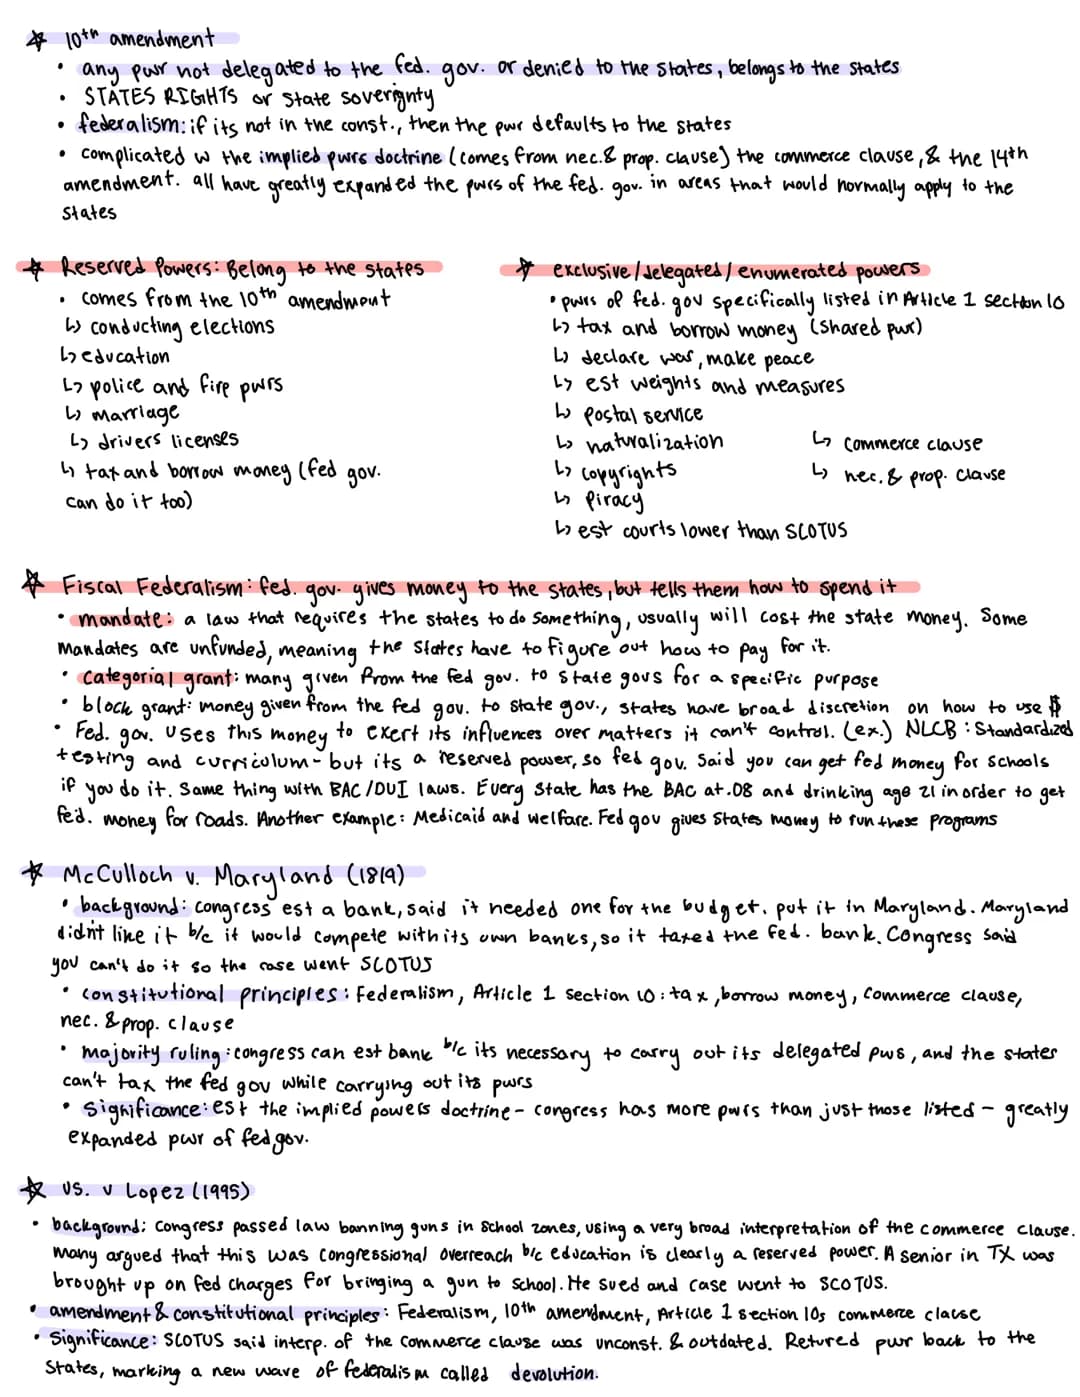 ☆ 10th amendment
• any pwr not delegated to the fed. gov. or denied to the states, belongs to the states
• STATES RIGHTS or State soverignty
• federalism: if its not in the const., then the pwr defaults to the states
• complicated w the implied pwrs doctrine (comes from nec.& prop. clause) the commerce clause, & the 14th
amendment. all have greatly expanded the pwrs of the fed. gov. in areas that would normally apply to the
states
☆ Reserved Powers: Belong to the states
• comes from the 10th amendment
↳ conducting elections
↳ education
↳ police and fire pwrs
↳ marriage
↳ drivers licenses
↳ tax and borrow money (fed gov.
can do it too)
☆ exclusive/delegated/enumerated powers
• pwrs of fed. gov specifically listed in Article 1 section 10
↳ tax and borrow money (shared pwr)
↳ declare war, make peace
↳ est weights and measures
↳ postal service
↳ naturalization
↳ copyrights
↳ piracy
↳ est courts lower than SCOTUS
↳ commerce clause
↳ nec. & prop. clause
☆ Fiscal Federalism: fed. gov. gives money to the states, but tells them how to spend it
• mandate: a law that requires the states to do something, usually will cost the state money. Some
mandates are unfunded, meaning the states have to figure out how to pay for it.
• categorial grant: many given from the fed gov. to state govs for a specific purpose
• block grant: money given from the fed gov. to state gov., states have broad discretion on how to use $
• Fed. gov. uses this money to exert its influences over matters it can't control. (ex.) NLCB: Standardized
testing and curriculum - but its a reserved power, so fed gov. said you can get fed money for schools
if you do it. Same thing with BAC/DUI laws. Every state has the BAC at .08 and drinking age 21 in order to get
fed. money for roads. Another example: Medicaid and welfare. Fed gov gives states money to run these programs
☆ McCulloch v. Maryland (1819)
• background: congress est a bank, said it needed one for the budget. put it in Maryland. Maryland
didn't like it b/c it would compete with its own banks, so it taxed the fed. bank. Congress said
you can't do it so the case went SCOTUS
• constitutional principles: Federalism, Article 1 section 10: tax, borrow money, commerce clause,
nec. & prop. clause
• majority ruling: congress can est bank b/c its necessary to carry out its delegated pws, and the states
can't tax the fed gov while carrying out its pwrs
• significance: est the implied powers doctrine - congress has more pwrs than just those listed - greatly
expanded pwr of fed gov.
☆ US. v Lopez (1995)
• background: Congress passed law banning guns in school zones, using a very broad interpretation of the commerce clause.
many argued that this was congressional overreach b/c education is clearly a reserved power. A senior in TX was
brought up on fed charges for bringing a gun to school. He sued and case went to SCOTUS.
• amendment & constitutional principles: Federalism, 10th amendment, Article 1 section 10s commerce clause
• Significance: SCOTUS said interp. of the commerce clause was unconst. & outdated. Retured pwr back to the
States, marking a new wave of federalism called devolution.